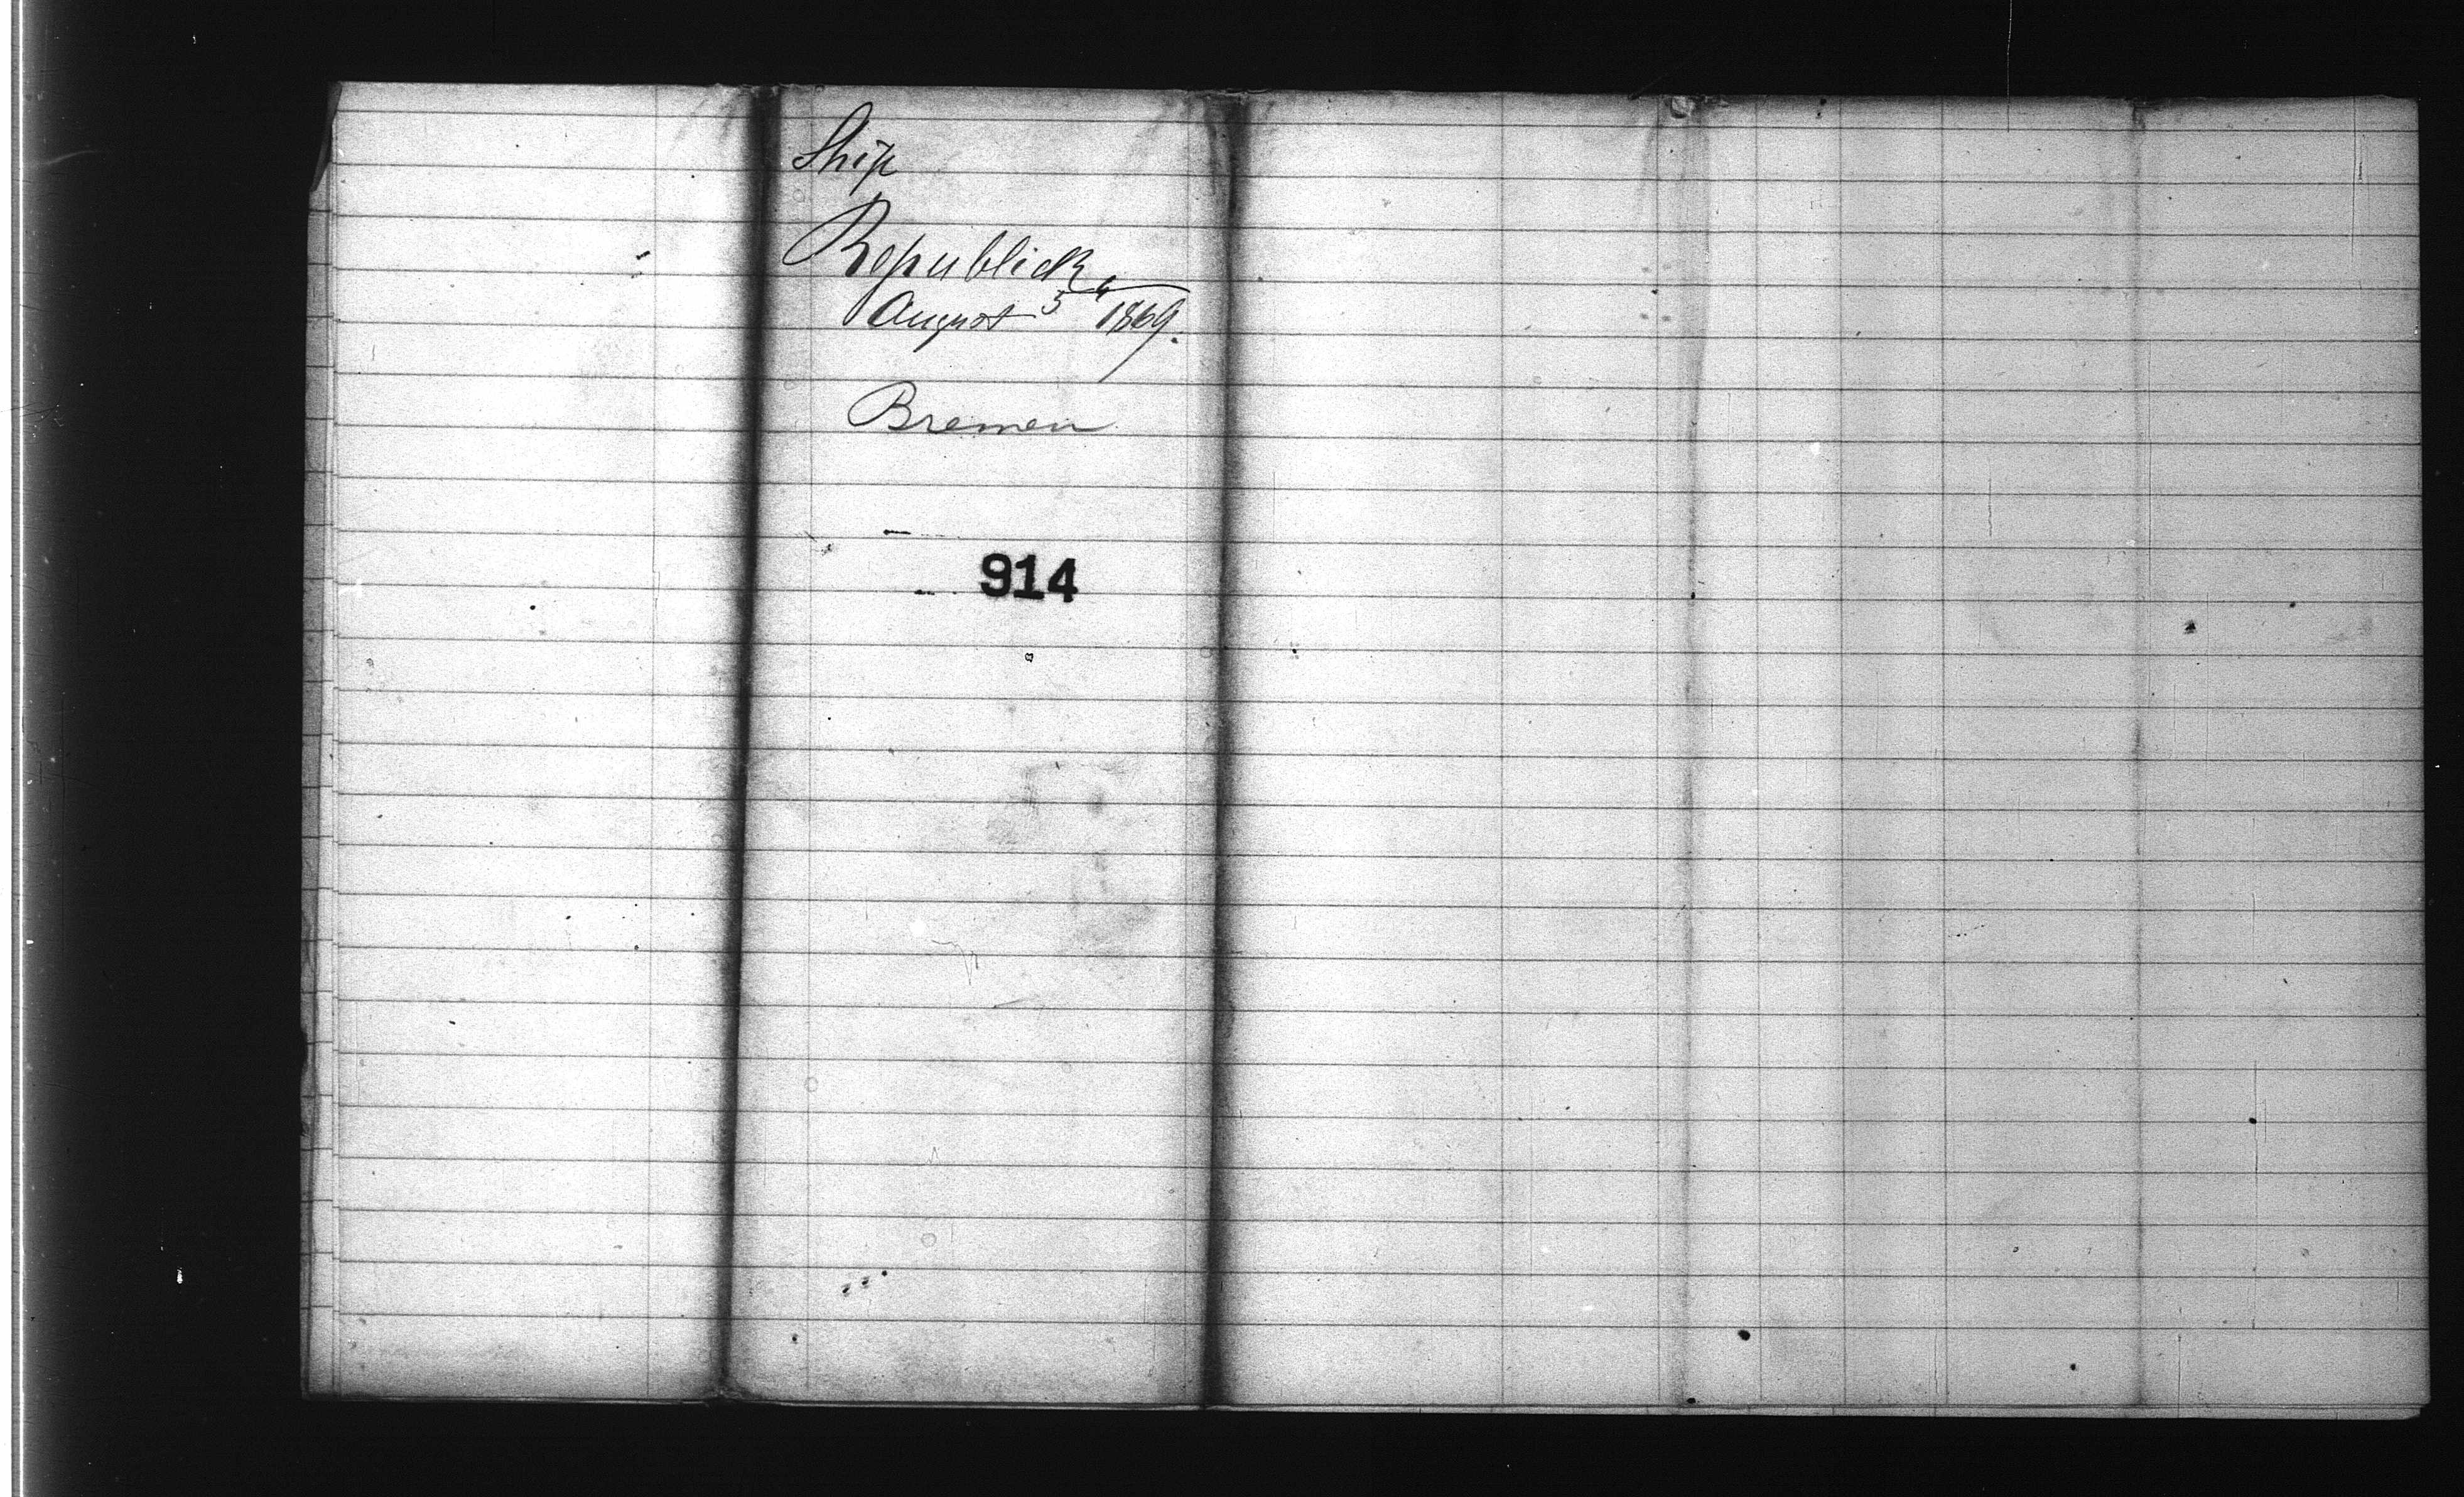 Ship
Republick
August 5" 1869.
Bremen
914